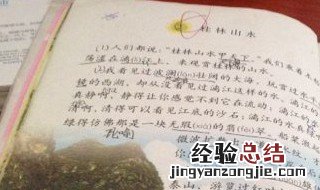 桂林山水
(1)人们都说:“桂林山水甲天下。”我们乘着木
荡漾在漓江上,来观赏桂林的山水。
(2)我看见过波澜壮阔的大海,玩赏过水平
镜的西湖,却从没看见过漓江这样的水。漓江
真静啊,静得让你感觉不到它在流动;漓江的水
清啊,清得可以看见江底的沙石;漓江的水真绿
绿得仿佛那是一块无瑕(xiá)的翡翠,
微波扩
泰山,游
经验总结
jingyanzongjie.com